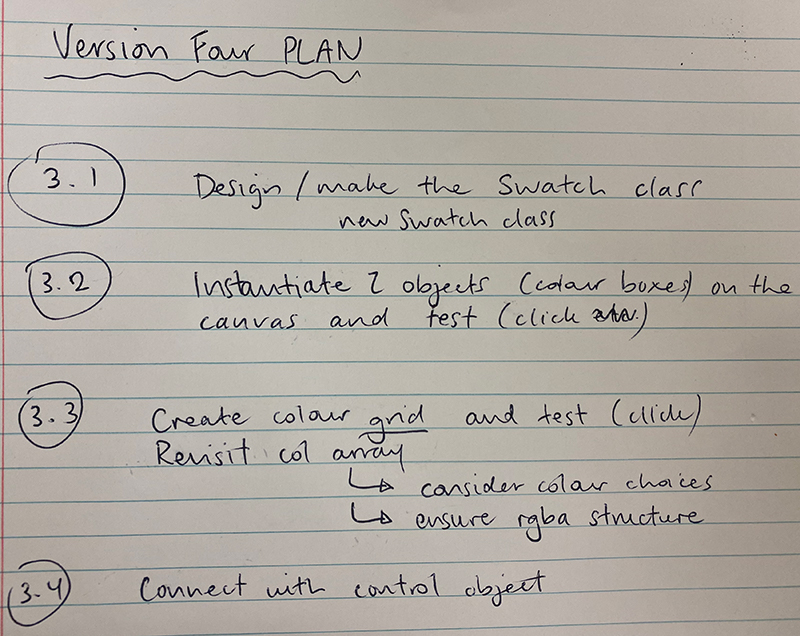 Version Four PLAN
3.1 Design / make the Swatch class
new Swatch class
3.2 Instantiate 2 objects (colour boxes) on the
canvas and test (click )
3.3 Create colour grid and test (click)
Revisit col array
↳ consider colour choices
↳ ensure rgba structure
3.4 Connect with control object